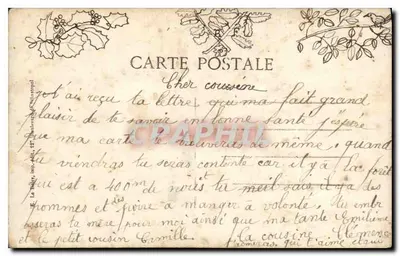 CARTE POSTALE
Cher cousine
j'ai reçu ta lettre qui ma fait grand
plaisir de te savoir in bonne santé j'espère
que ma carte te trouveras de même, quand
tu viendras tu seras contente car il y a la forêt
qui est a 400m de nous et il y a des
pommes et des poire a manger a volonté. tu embr
asseras ta mère pour moi ainsi que ma tante Emilienne
et le petit cousin Camille. ta cousine Clémence
qui t'aime